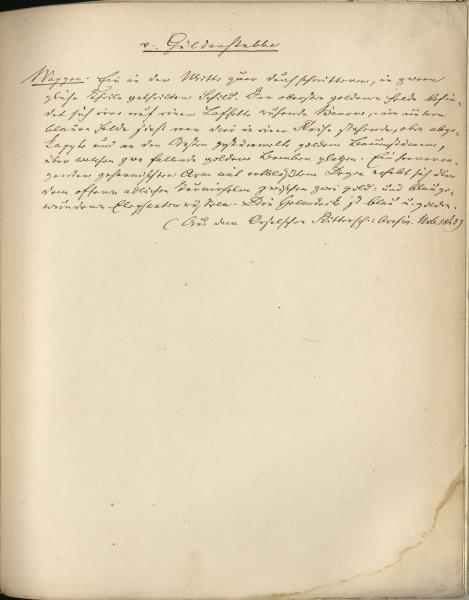 v. Güldenstubbe
Wappen. Ein in der Mitte quer durchschnittener, in zween
gleiche Theile getheilter Schild. Im obersten goldenen Felde befin-
det sich eine auf einer Laffette ruhende Kanone, - im untern
blauen Felde sieht man drei in einer Reihe stehende, oben abge-
kappte und an den Seiten gestümmelte goldene Baumstämme,
über welchen zwo fallende goldene Bomben platzen. Ein hervorra-
gender geharnischter Arm mit entblößtem Degen erhebt sich über
dem offenen adlichen Turnierhelm zwischen zwei gold- und blauge-
wundenen Elephantenrüsseln. Die Helmdeck ist blau u. golden.
(Aus dem Oeselschen Rittersch: Archiv.